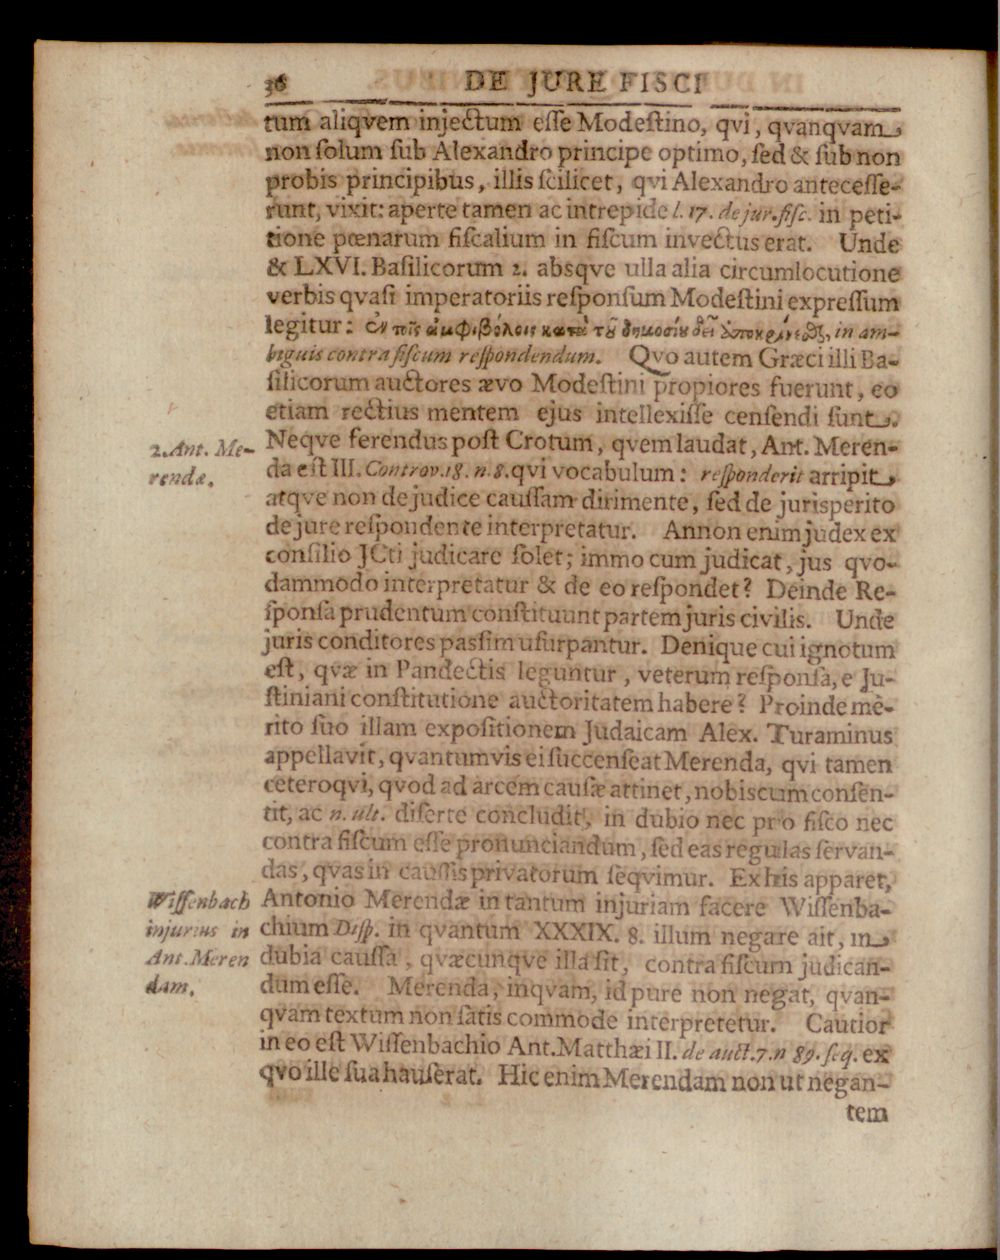 36 DE JURE FISCI
tum aliqvem injectum esse Modestino, qvi, qvanqvam
non solum sub Alexandro principe optimo, sed & sub non
probis principibus, illis scilicet, qvi Alexandro antecesse-
runt, vixit: aperte tamen ac intrepide l. 17. de jur. fisc. in peti-
tione pœnarum fiscalium in fiscum invectus erat. Unde
& LXVI. Basilicorum 2. absqve ulla alia circumlocutione
verbis qvasi imperatoriis responsum Modestini expressum
legitur: ἐν τοῖς ἀμφιβόλοις κατὰ τῦ δημοσίȣ δεῖ ἀποκρίνεϑς, in am-
biguis contra fiscum respondendum. Qvo autem Græci illi Ba-
silicorum auctores ævo Modestini propiores fuerunt, eo
etiam rectius mentem ejus intellexisse censendi sunt.
2. Ant. Me-
rendæ.
Neqve ferendus post Crotum, qvem laudat, Ant. Meren-
da est III. Controv. 18. n. 8. qvi vocabulum: responderit arripit
atqve non de judice caussam dirimente, sed de jurisperito
de jure respondente interpretatur. Annon enim judex ex
consilio JCti judicare solet; immo cum judicat, jus qvo-
dammodo interpretatur & de eo respondet? Deinde Re-
sponsa prudentum constituunt partem juris civilis. Unde
juris conditores passim usurpantur. Denique cui ignotum
est, qvæ in Pandectis leguntur, veterum responsa, e Ju-
stiniani constitutione auctoritatem habere? Proinde me-
rito suo illam expositionem Judaicam Alex. Turaminus
appellavit, qvantumvis ei succenseat Merenda, qvi tamen
ceteroqvi, qvod ad arcem causæ attinet, nobiscum consen-
tit, ac n. ult. diserte concludit, in dubio nec pro fisco nec
contra fiscum esse pronunciandum, sed eas regulas servan-
das, qvas in caussis privatorum seqvimur. Ex his apparet,
Wissenbach
injurius in
Ant. Meren
dam.
Antonio Merendæ in tantum injuriam facere Wissenba-
chium Disp. in qvantum XXXIX. 8. illum negare ait, in
dubia caussa, qvæcunqve illa sit, contra fiscum judican-
dum esse. Merenda, inqvam, id pure non negat, qvan-
qvam textum non satis commode interpretetur. Cautior
in eo est Wissenbachio Ant. Matthæi II. de auct. 7. n 89. seq. ex
qvo ille sua hauserat. Hic enim Merendam non ut negan-
tem